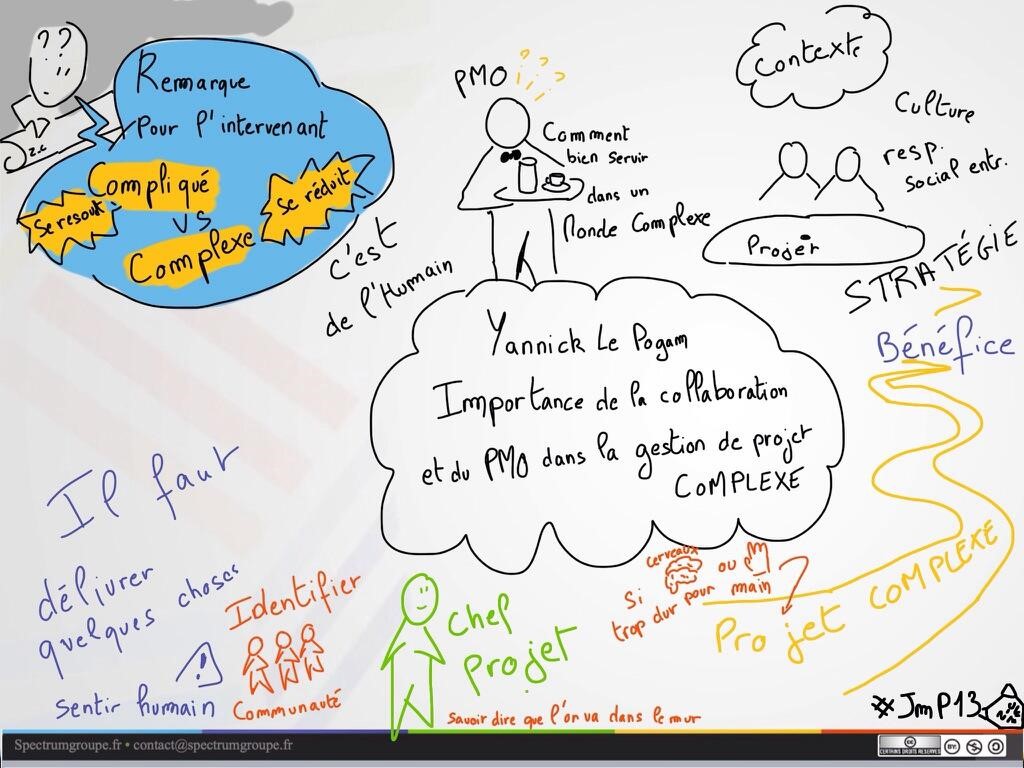 ? ?
Remarque
Pour l'intervenant
Compliqué
se resout
vs
se réduit
Complexe
c'est
de l'Humain
PMO
? ? ?
Comment
bien servir
dans un
Monde Complexe
Contexte
Culture
resp.
social entr.
Projet
STRATÉGIE
Bénéfice
Yannick Le Pogam
Importance de la collaboration
et du PMO dans la gestion de projet
COMPLEXE
Il faut
délivrer
quelques choses
Sentir humain
!
Identifier
Communauté
Chef
Projet
Savoir dire que l'on va dans le mur
cerveaux
Si ou
trop dur pour main
Projet COMPLEXE
#JMP13
Spectrumgroupe.fr • contact@spectrumgroupe.fr
cc
CERTAINS DROITS RÉSERVÉS
BY: